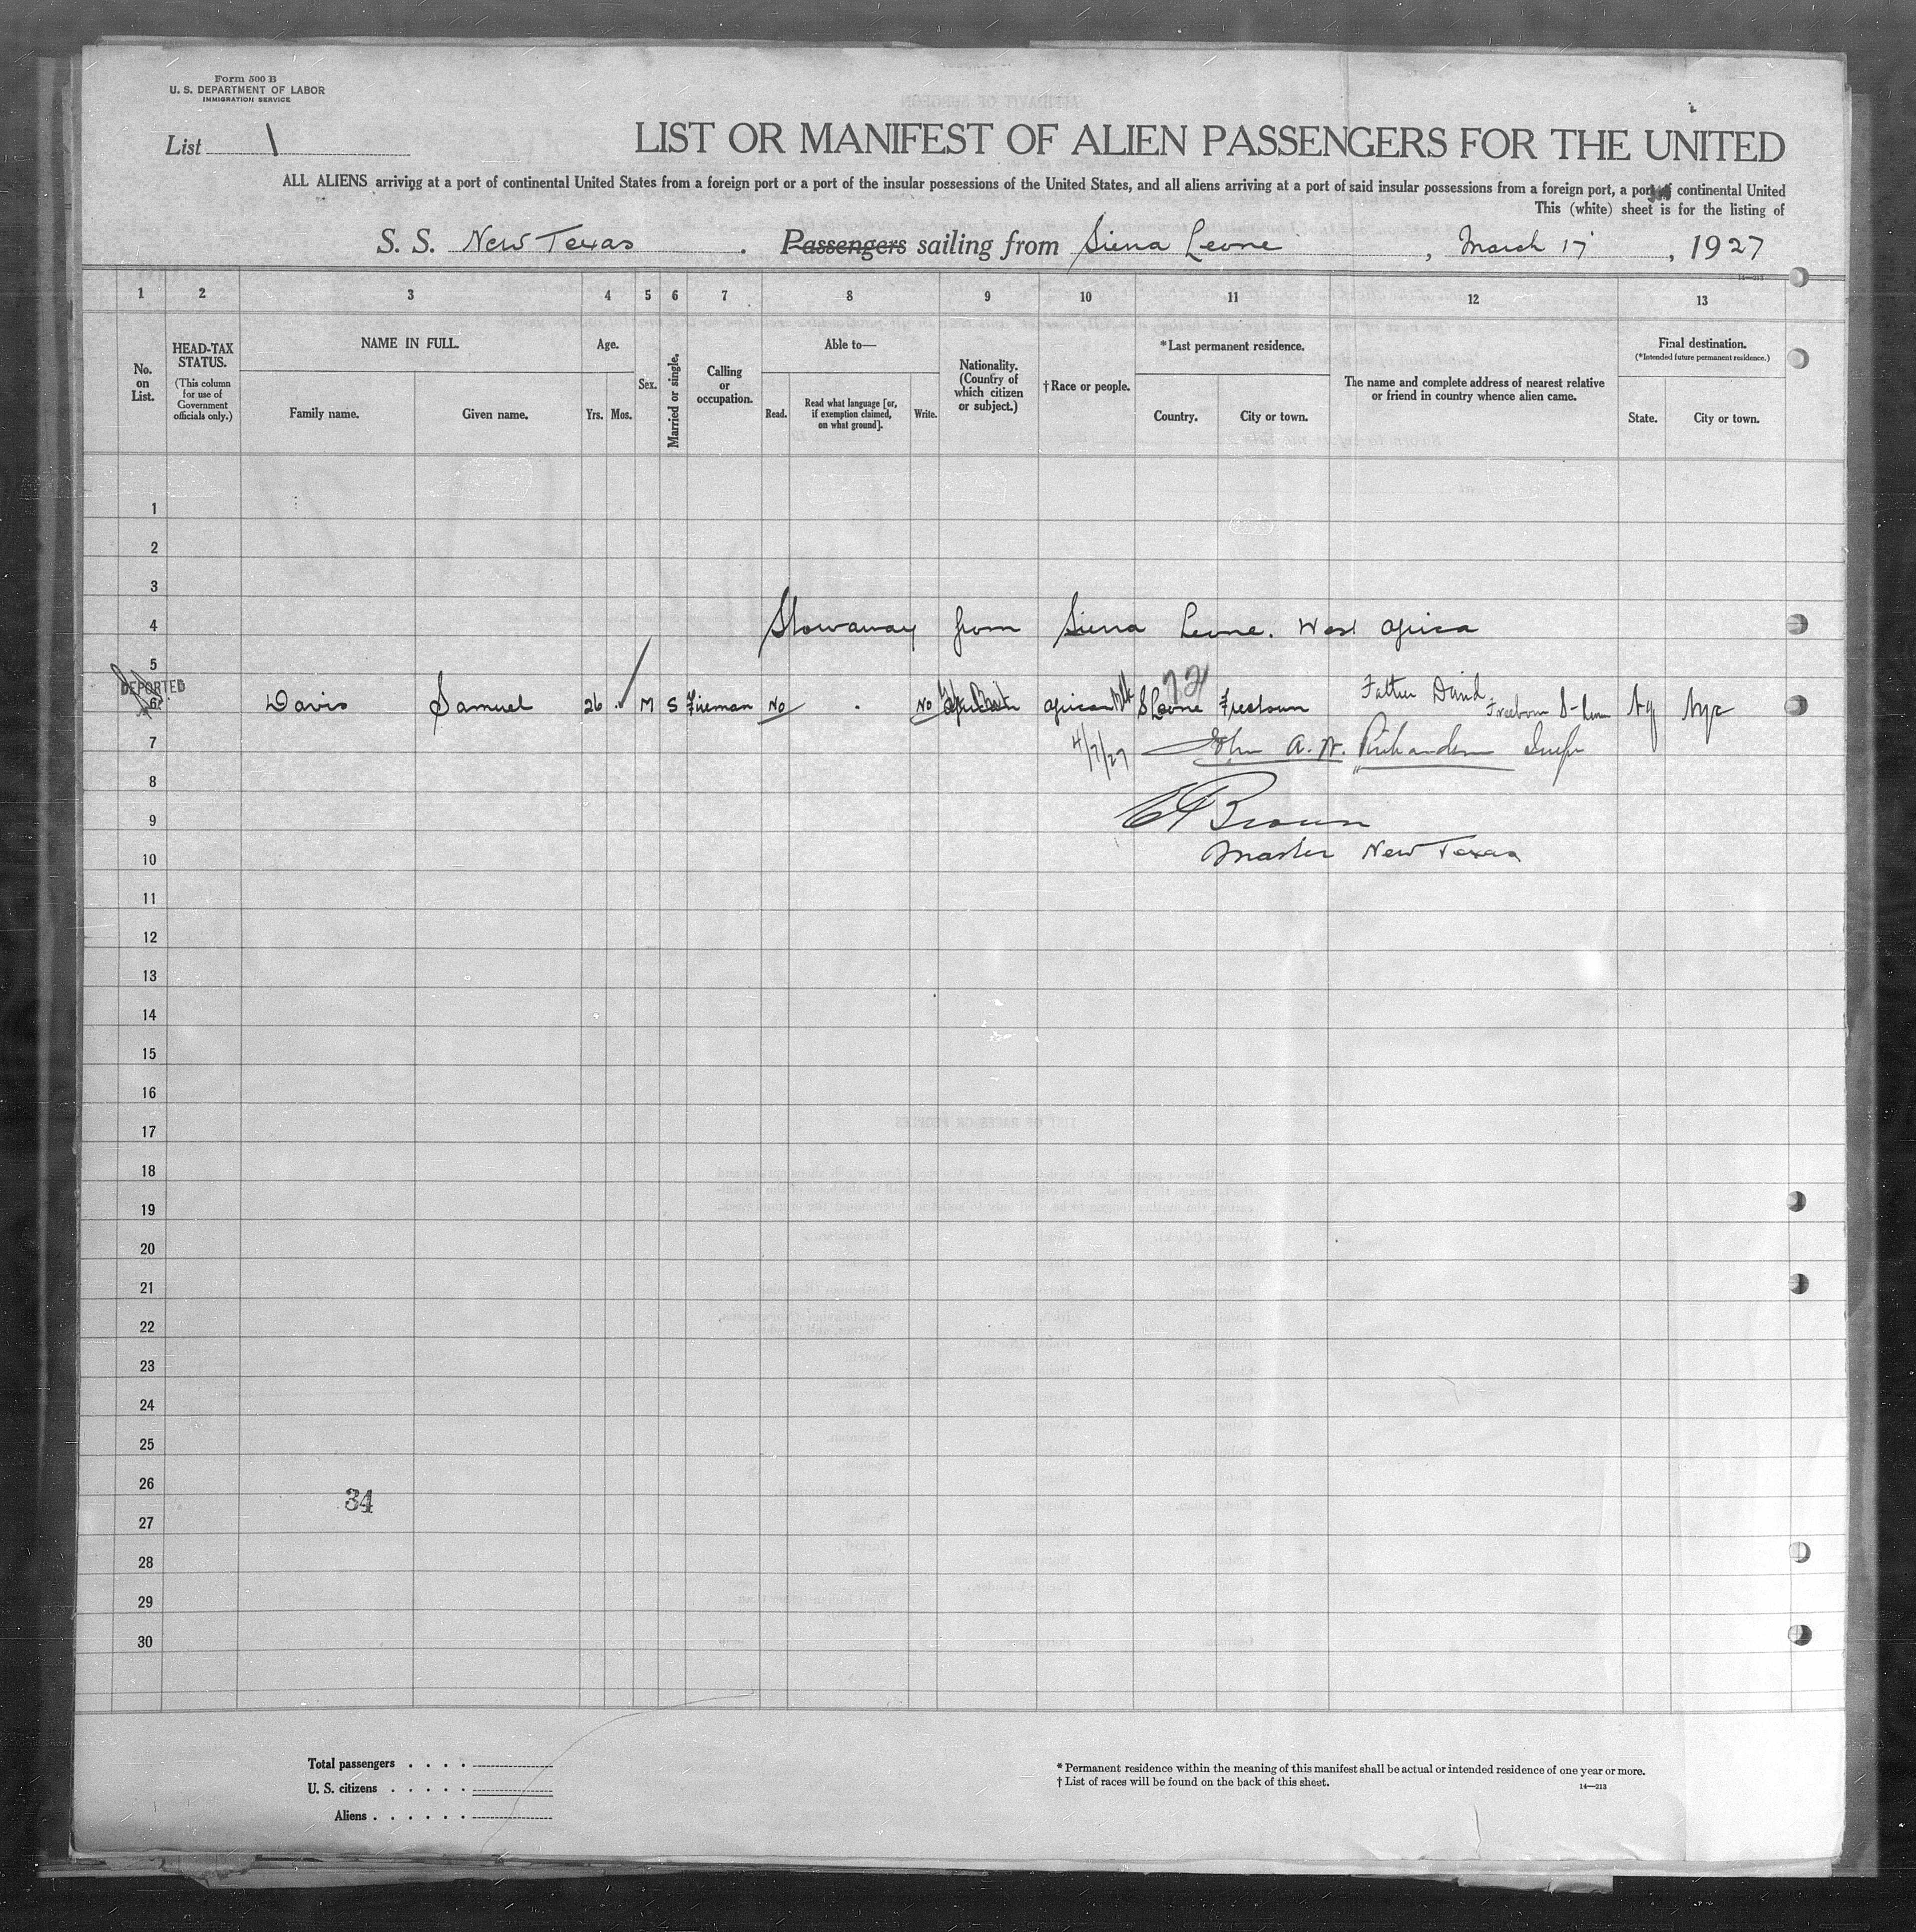 Form 500 B
U. S. DEPARTMENT OF LABOR
IMMIGRATION SERVICE
List 1
LIST OR MANIFEST OF ALIEN PASSENGERS FOR THE UNITED
ALL ALIENS arriving at a port of continental United States from a foreign port or a port of the insular possessions of the United States, and all aliens arriving at a port of said insular possessions from a foreign port, a port of continental United
This (white) sheet is for the listing of
S. S. New Texas . Passengers sailing from Sierra Leone , March 17 , 1927
14—213
1 2 3 4 5 6 7 8 9 10 11 12 13
No. on List.
HEAD-TAX STATUS.
(This column for use of Government officials only.)
NAME IN FULL.
Family name. Given name.
Age.
Yrs. Mos.
Sex.
Married or single.
Calling or occupation.
Able to—
Read. Read what language [or, if exemption claimed, on what ground]. Write.
Nationality. (Country of which citizen or subject.)
† Race or people.
* Last permanent residence.
Country. City or town.
The name and complete address of nearest relative or friend in country whence alien came.
Final destination.
(* Intended future permanent residence.)
State. City or town.
1
2
3
4 Stowaway from Sierra Leone. West Africa
5
DEPORTED
6 Davis Samuel 26 M S Fireman No No African Blk S Leone Freetown Father David Freetown S-Leone Ny Nyc
72
7 4/7/27 John A. W. Richardson Insp
8
9 Brown
10 Master New Texas
11
12
13
14
15
16
17
18
19
20
21
22
23
24
25
26
34
27
28
29
30
Total passengers . . . .
U. S. citizens . . . . .
Aliens . . . . . .
* Permanent residence within the meaning of this manifest shall be actual or intended residence of one year or more.
† List of races will be found on the back of this sheet.
14—213